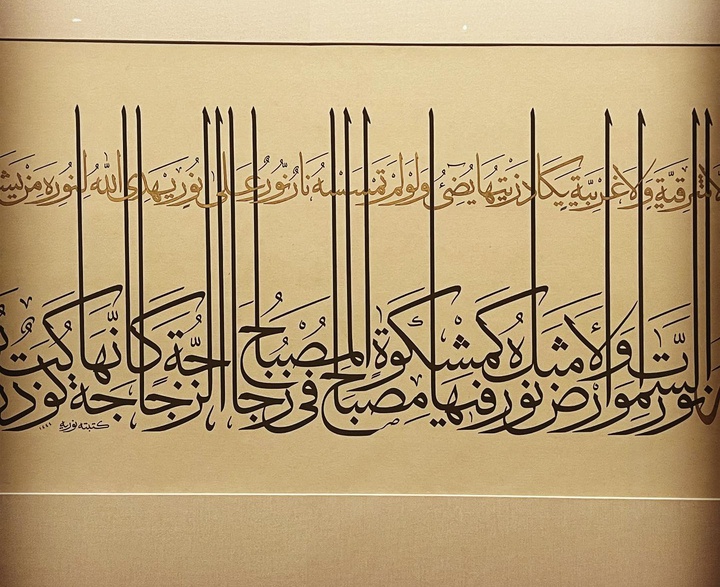 لَا شَرْقِيَّةٍ وَلَا غَرْبِيَّةٍ يَكَادُ زَيْتُهَا يُضِيءُ وَلَوْ لَمْ تَمْسَسْهُ نَارٌ نُورٌ عَلَى نُورٍ يَهْدِي اللّٰهُ لِنُورِهِ مَنْ
نُورُ السَّمٰوَاتِ وَالْاَرْضِ مَثَلُ نُورِهِ كَمِشْكٰوةٍ فِيهَا مِصْبَاحٌ اَلْمِصْبَاحُ فِي زُجَاجَةٍ اَلزُّجَاجَةُ كَاَنَّهَا كَوْكَبٌ
كتبته نورية